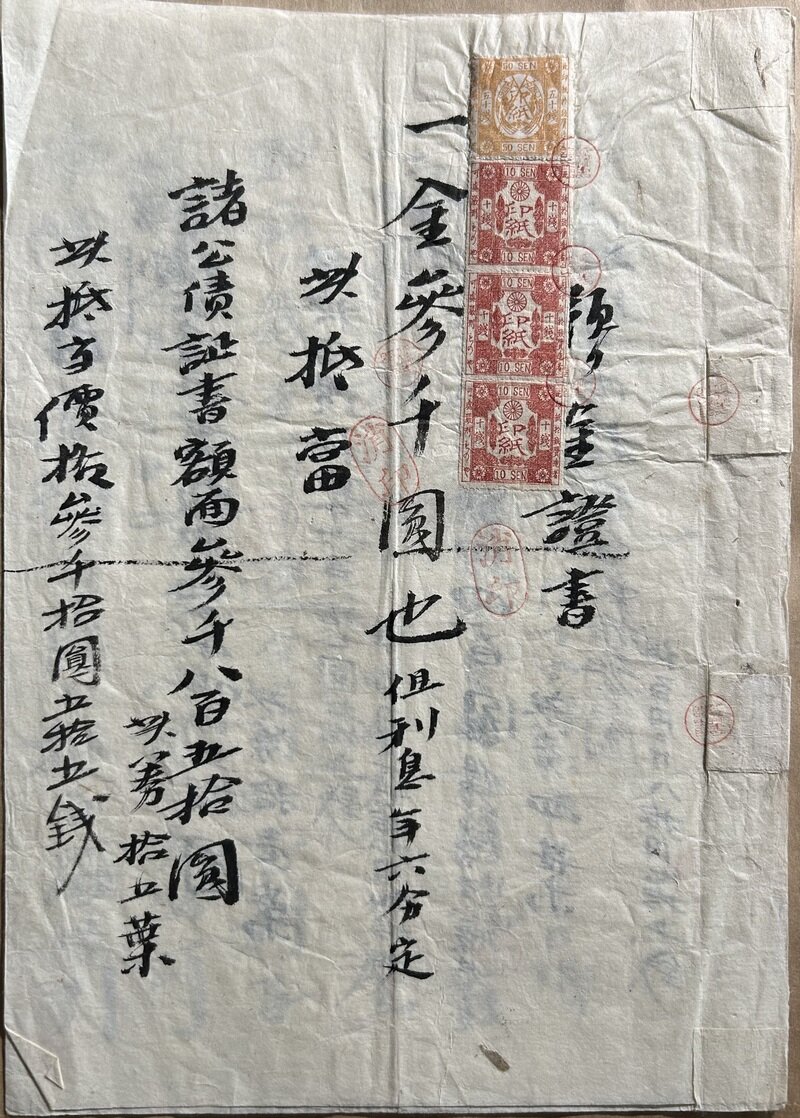 預金證書
一金參千圓也 但利息年六分定
此抵當
諸公債証書額面參千八百五拾圓
此券拾五葉
此抵当價格參千拾圓五拾五錢
50 SEN
五十錢 印紙 五十錢
50 SEN
10 SEN
十錢 印紙 十錢
10 SEN
10 SEN
十錢 印紙 十錢
10 SEN
10 SEN
十錢 印紙 十錢
10 SEN
消印
消印